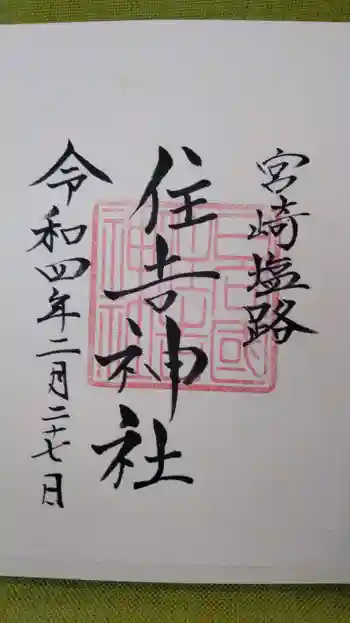 宮崎塩路
住吉神社
令和四年二月二十七日